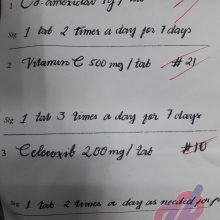 1 Co-amoxiclav 1g /
Sig 1 tab 2 times a day for 7 days
2 Vitamin C 500 mg / tab #21
Sig: 1 tab 3 times a day for 7 days
3 Celecoxib 200 mg / tab #10
Sig 1 tab 2 times a day as needed for p